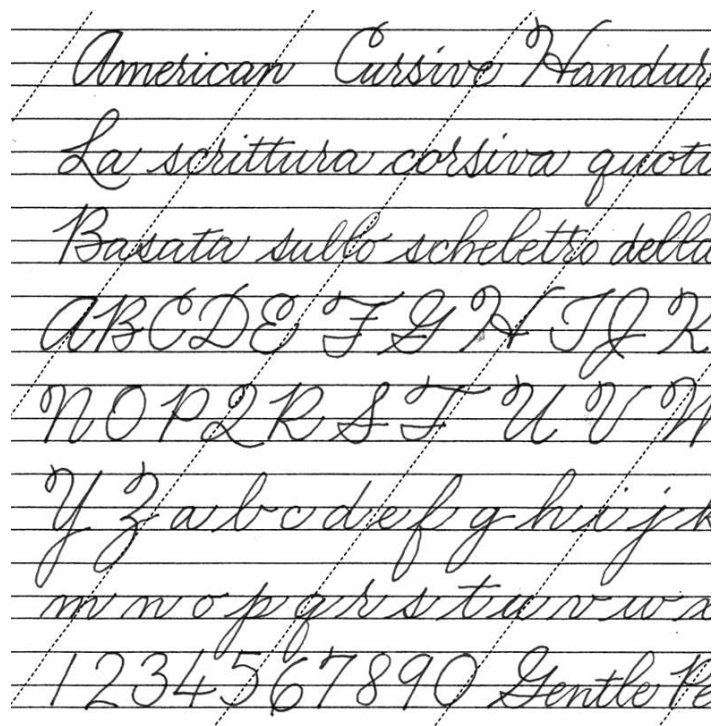 American Cursive Handwr
La scrittura corsiva quoti
Basata sullo scheletro della
A B C D E F G H I J K
N O P Q R S T U V W
Y Z a b c d e f g h i j k
m n o p q r s t u v w x
1 2 3 4 5 6 7 8 9 0 Gentle Pe